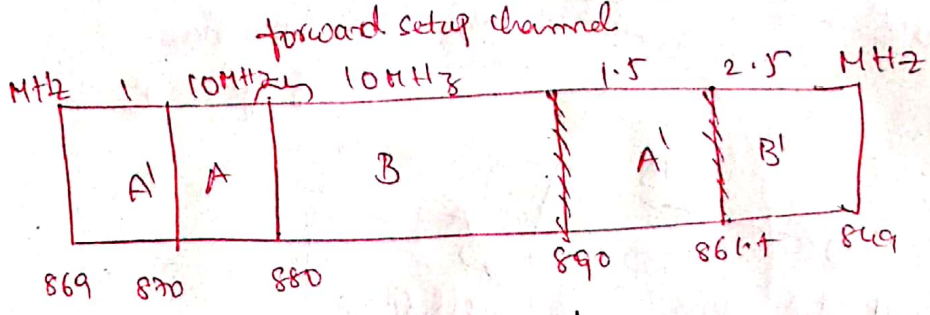 forward setup channel
MHz 1 10MHz 10MHz 1.5 2.5 MHz
A' A B A' B'
869 870 880 890 849